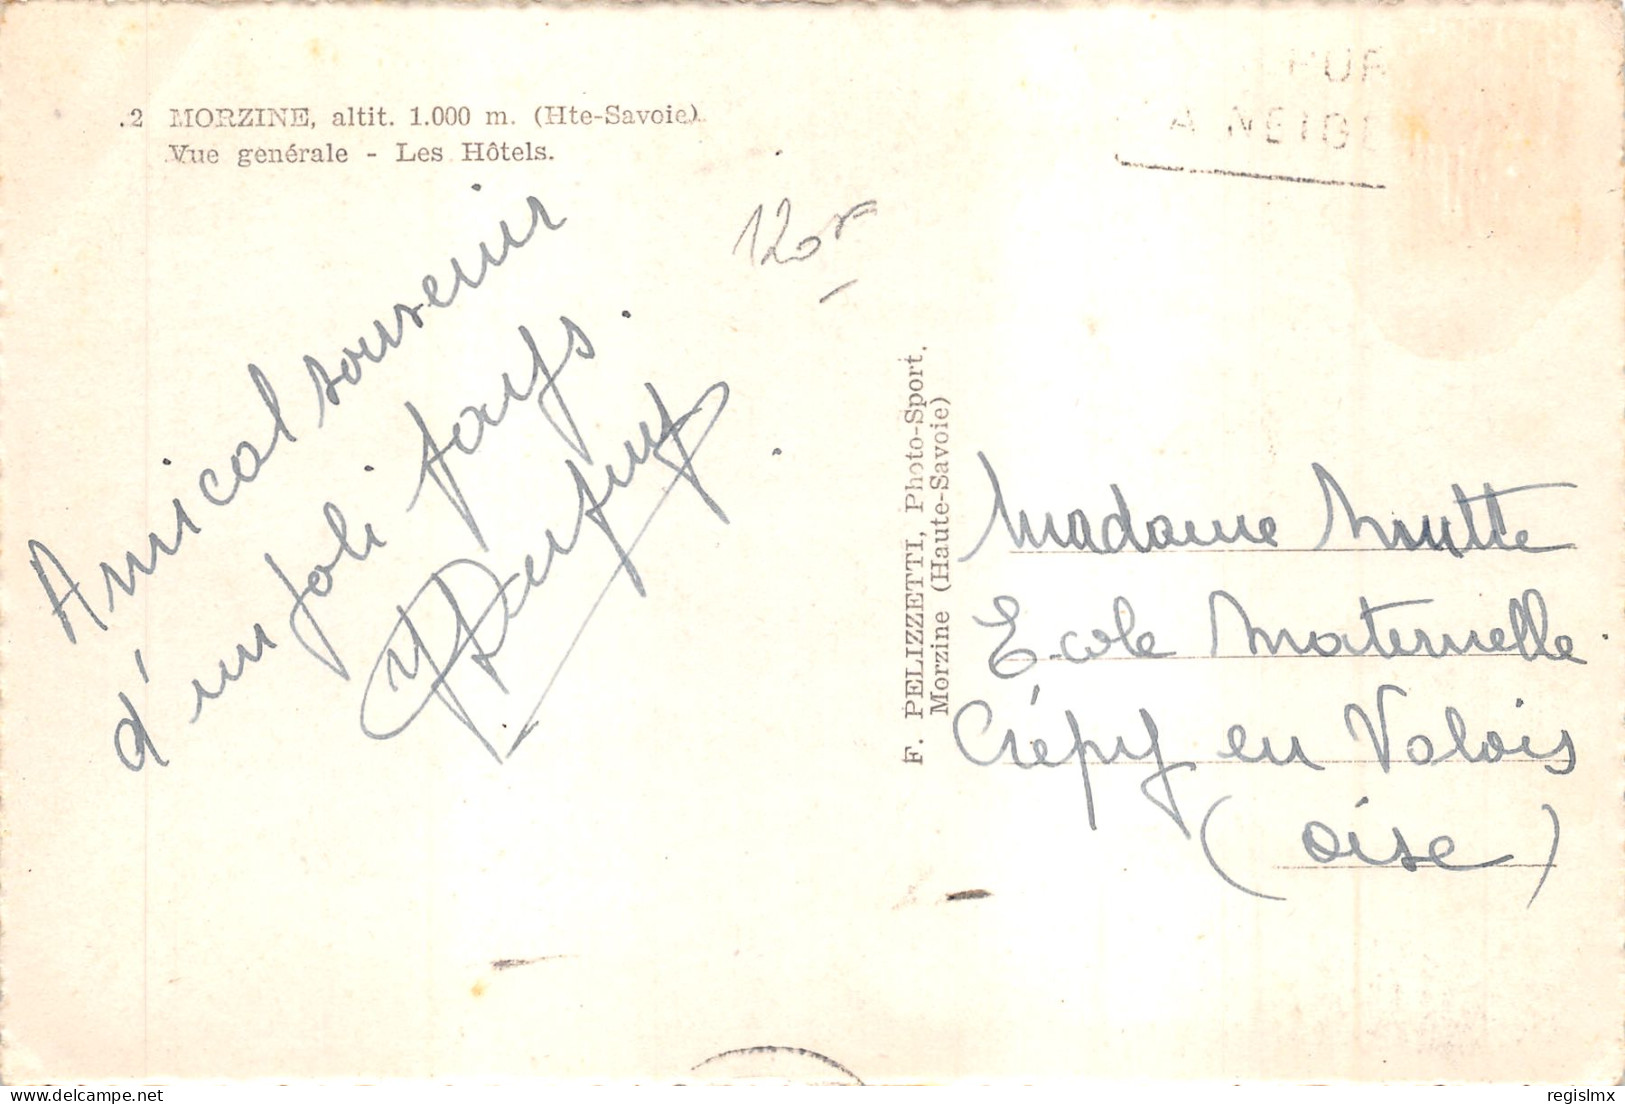 .2 MORZINE, altit. 1.000 m. (Hte-Savoie)
Vue generale - Les Hôtels.
A NEIGE
120F
Amical souvenir
d'un joli pays.
F. PELIZZETTI, Photo-Sport.
Morzine (Haute-Savoie)
Madame Mutte
Ecole Maternelle.
Crépy en Valois
(Oise)
regislmx